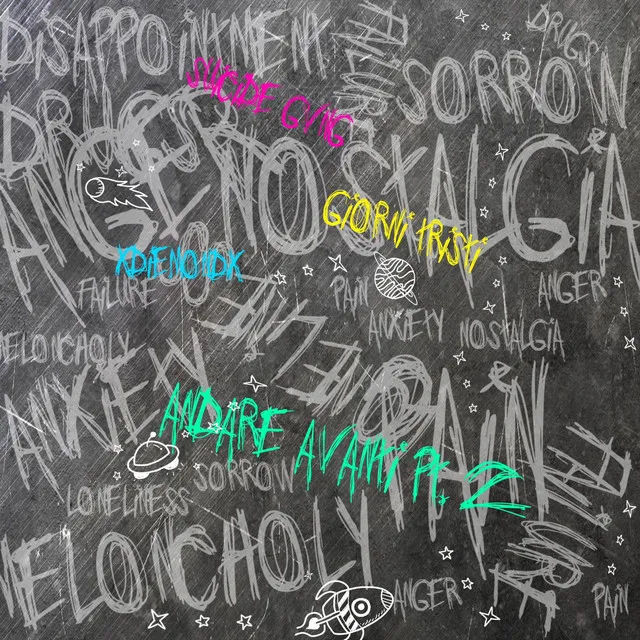 DiSAPPOiNtMENt
DRUGS
SORROW
SUiCiDE GVNG
DRUGS
ANGER
NOStALGiA
GiORNi tRiSti
XDiENOiDX
FAiLURE
PAiN
ANGER
ANXiEtY
NOStALGiA
MELONCHOLY
FAiLURE
ANXiEtY
PAiN
ANDARE AVANti Pt. 2
SORROW
LONELiNESS
MELONCHOLY
ANGER
PAiN